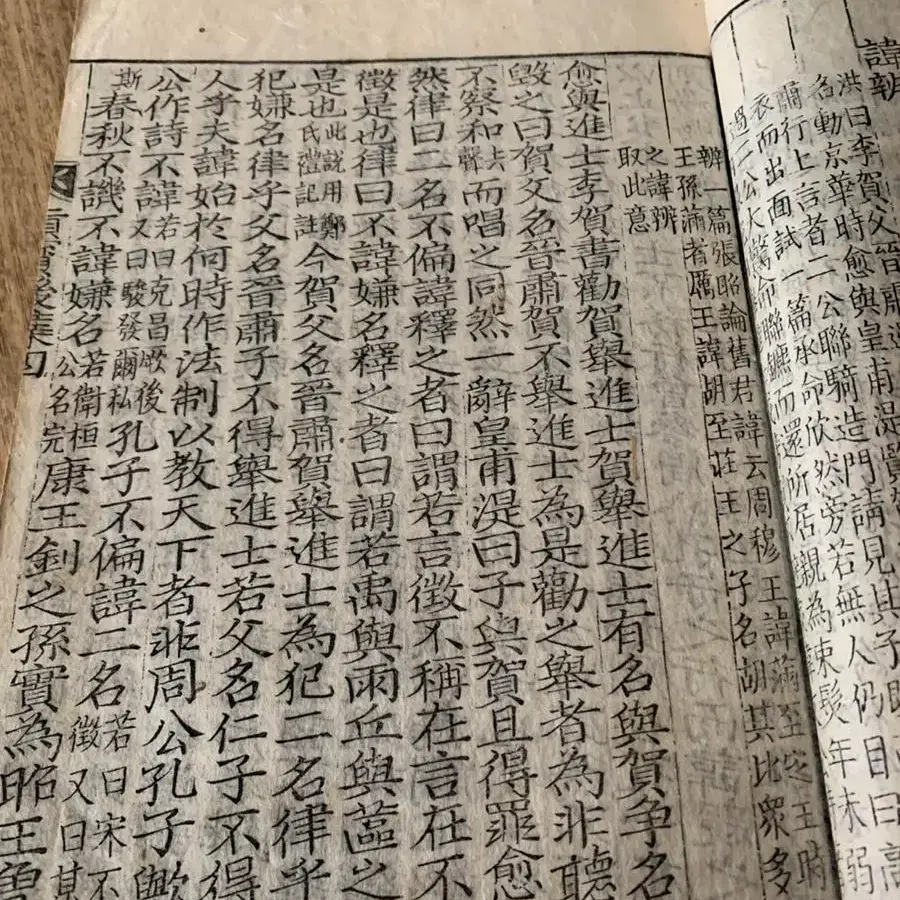 諱辨
洪曰李賀父
名動京華時愈與皇甫湜覽
行上言者二公聯騎造門請見其子既
衣而出面試一篇承命欣然旁若無人仍目曰高
過二公大驚命聯而還所居親為束髮年未弱
辨一篇張昭論舊君諱云周穆王諱滿至定王時
王孫滿者厲王諱胡至莊王之子名胡其比衆多
之諱辨
取此意
愈與進士李賀書勸賀舉進士賀舉進士有名與賀争名
毀之曰賀父名晉肅賀不舉進士為是勸之舉者為非聽
不察和去聲而唱之同然一辭皇甫湜曰子與賀且得罪愈
然律曰二名不偏諱釋之者曰謂若言徵不稱在言在不
徵是也律曰不諱嫌名釋之者曰謂若禹與雨丘與蓲之
是也此說用鄭氏禮記註今賀父名晉肅賀舉進士為犯二名律乎
犯嫌名律乎父名晉肅子不得舉進士若父名仁子不得
人乎夫諱始於何時作法制以教天下者非周公孔子歟
公作詩不諱若曰克昌厥後又曰駿發爾私孔子不偏諱二名若曰宋不徵又曰某
斯春秋不譏不諱嫌名若衛桓公名完康王釗之孫實為昭王魯